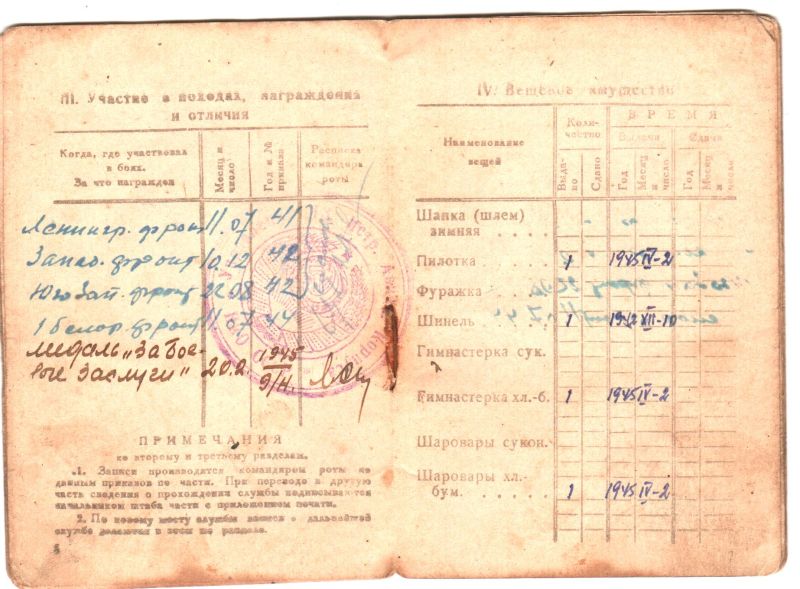 III. Участие в походах, награждения
и отличия
Когда, где участвовал
в боях.
За что награжден
Месяц и
число
Год и №
приказа
Расписка
командира
роты
Ленингр. фронт 11.07 41
Запад. фронт 10.12 42
Юго Зап. фронт 22.08 42
1 белор. фронт 11.07 44
медаль „За Бое-
вые Заслуги" 20.2. 1945
9/н.
ПРИМЕЧАНИЯ
ко второму и третьему разделам.
1. Записи производятся командиром роты по
данным приказов по части. При переводе в другую
часть сведения о прохождении службы подписываются
начальником штаба части с приложением печати.
2. По новому месту службы записи о дальнейшей
службе делаются в этом же разделе.
IV. Вещевое имущество
Наименование
вещей
Коли-
чество
ВРЕМЯ
Выдачи
Сдачи
Выда-
но
Сдано
Год
Месяц
и
число
Год
Месяц
и
число
Шапка (шлем)
зимняя . . . .
Пилотка . . . . 1 1945 IV-2
Фуражка . . . .
Шинель . . . . 1 1942 XII-10
Гимнастерка сук.
Гимнастерка хл.-б. 1 1945 IV-2
Шаровары сукон.
Шаровары хл.-
бум. . . . . . 1 1945 IV-2